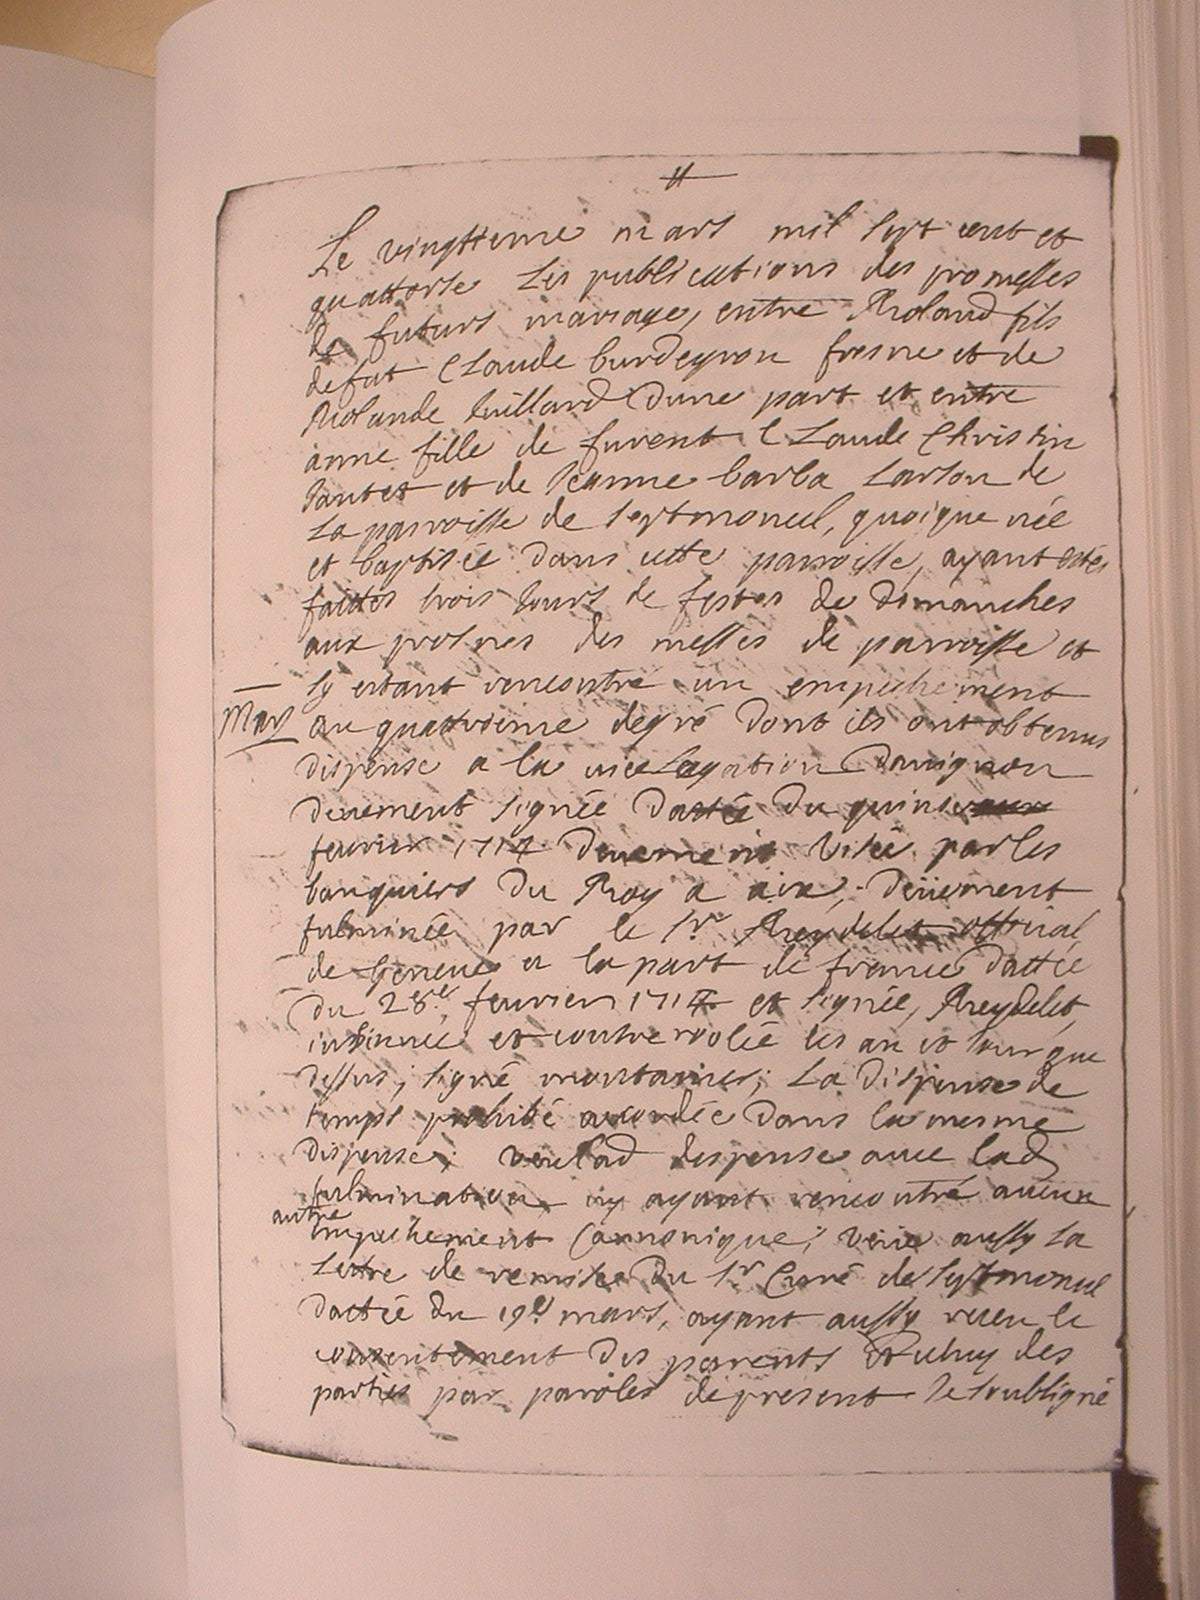 Le vingtieme mars mil sept cent et
quattorse les publications des promesses
de futurs mariage, entre Roland fils
defut Claude burdeyron fresne et de
Rolande Juillard dune part et entre
anne fille de furent Claude Christin
Jantet et de Jeanne barba Larson de
la parroisse de Septmoncel, quoique née
et baptisée dans cette parroisse, ayant estés
faittes trois Jours de festes de dimanches
aux prosnes des messes de parroisse et
sy estant rencontré un empechement
Mars au quattrieme degré dont ils ont obtenus
dispense a la vice Legation davignon
deuement signée dattée du quinse
feuvrier 1714 deuement visée par les
banquiers du Roy a aix, deüement
fulminée par le Sr Reydelet official
de Geneve a la part de france dattée
du 28e feuvrier 1714 et signée, Reydelet,
insinuée et controolée les an et Jour que
dessus; signé ; La dispense de
temps prohibé accordée dans la mesme
dispense; veu lad dispense avec lad
fulmination, ny ayant rencontré aucun
autre
empechement Cannonique; veüe aussy la
Lettre de remise du Sr Curé de Septmoncel
dattée du 19e mars, ayant aussy receu le
consentement des parents et celuy des
parties par paroles de present Je soubsigné